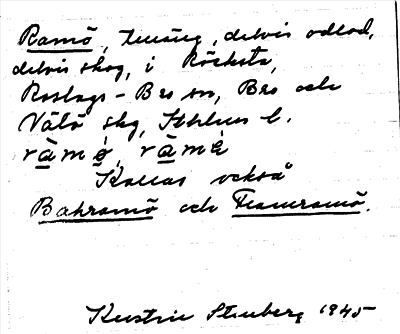 Ramö, utäng, delvis odlad,
delvis skog, i Röksta,
Roslags-Bro sn, Bro och
Vätö skg, Sthlms l.
råmö, råmé
Kallas också
Bakramö och Framramö.
Kerstin Stenberg 1945